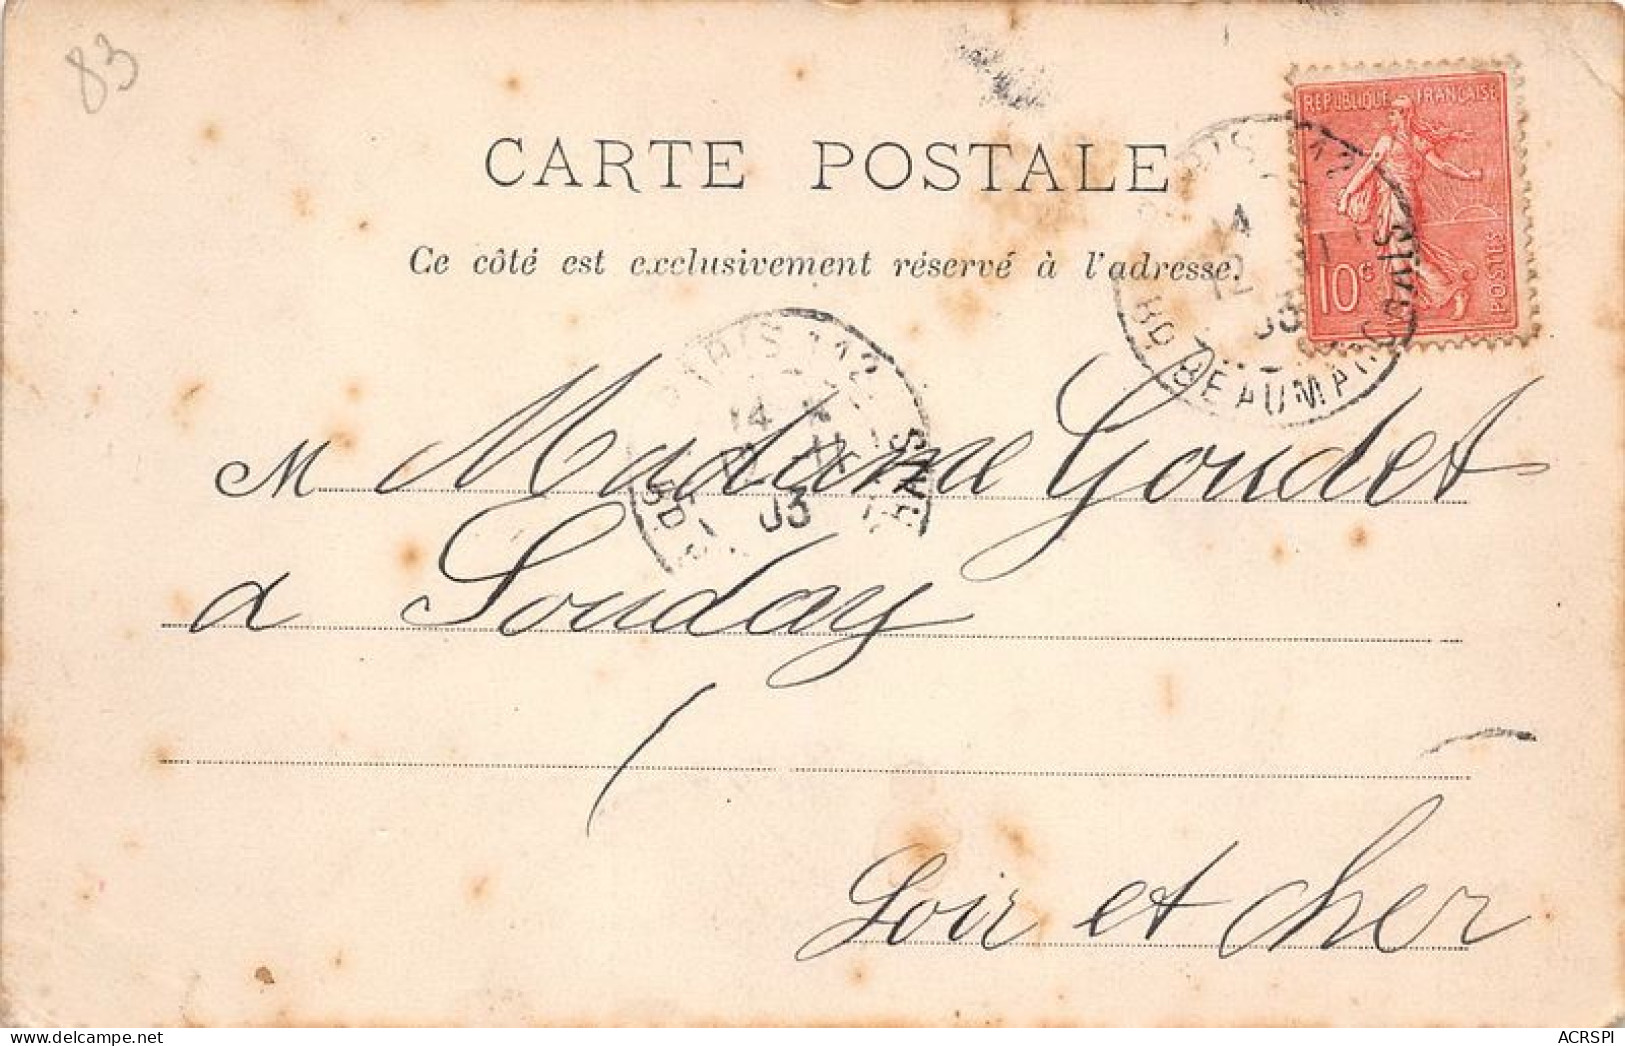 83
CARTE POSTALE
Ce côté est exclusivement réservé à l'adresse.
RÉPUBLIQUE FRANÇAISE
10c
POSTES
PARIS 112
14
12 11
03
BD BEAUMARCHAIS
PARIS 112
14
12 11
03
BD
M Madame Goudet
a Souday
Loir et cher
ACRSPI